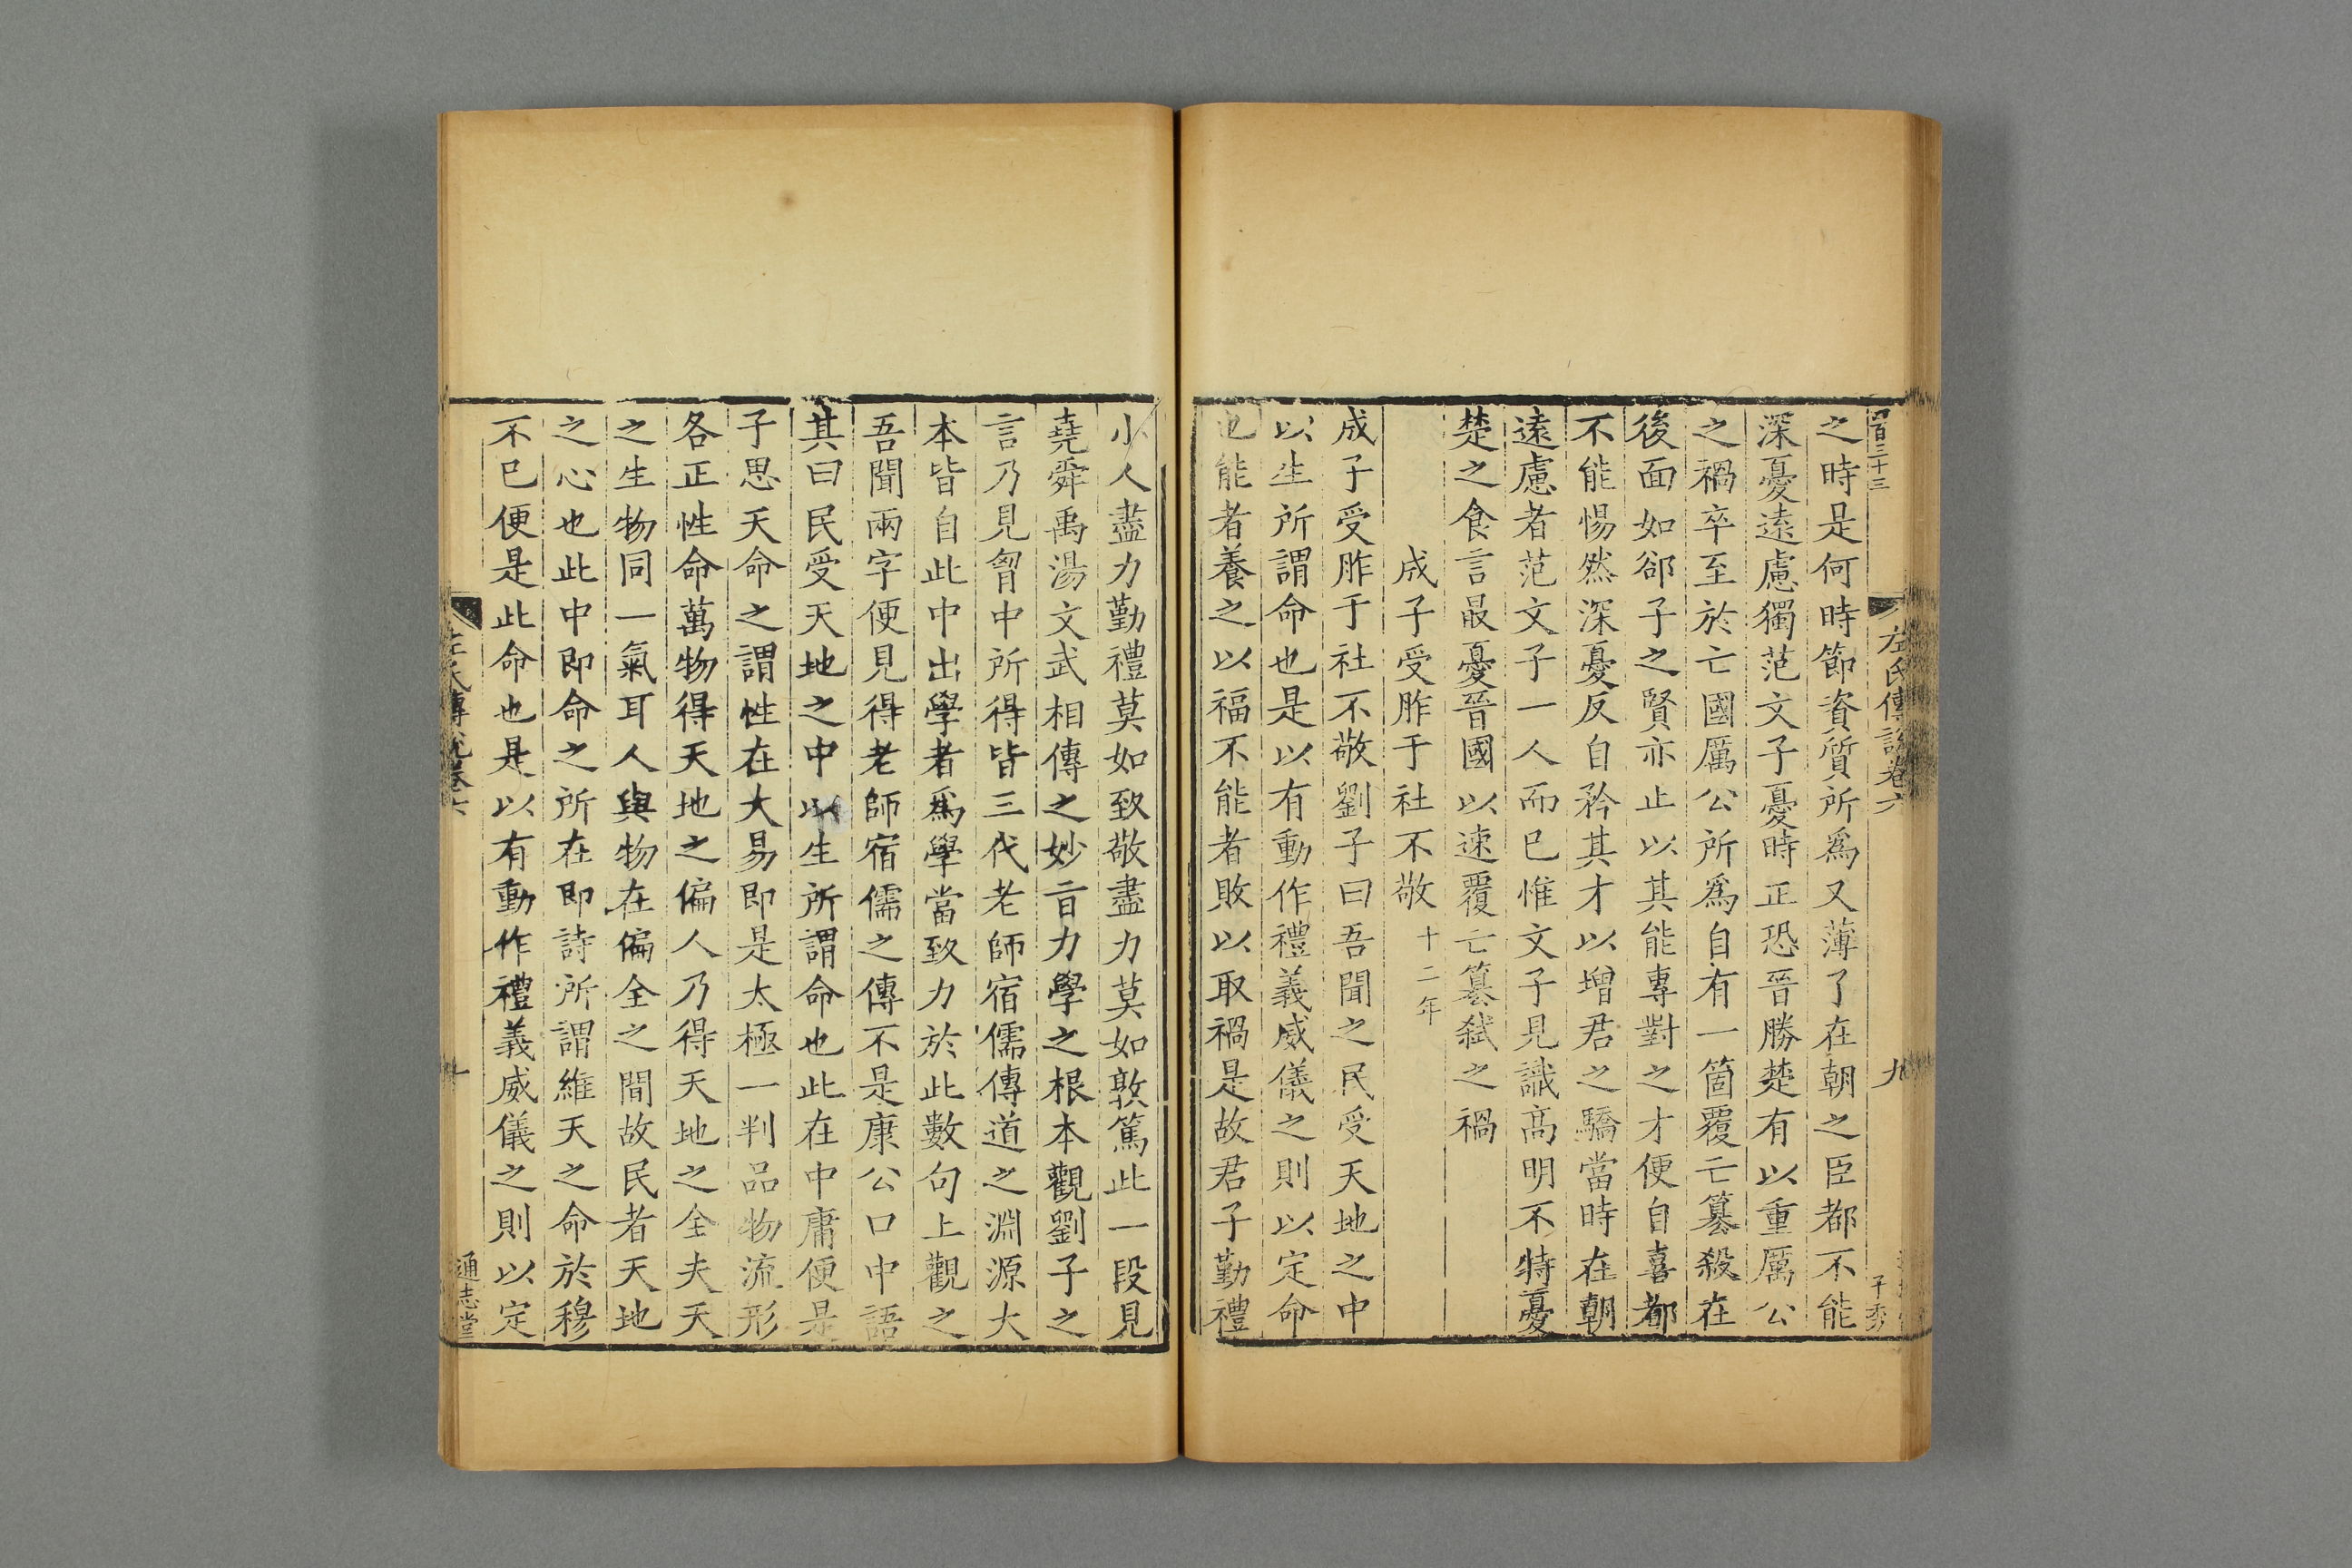 百三十三
左氏傳說卷六
九
子秀
之時是何時節資質所爲又薄了在朝之臣都不能
深憂遠慮獨范文子憂時正恐晉勝楚有以重厲公
之禍卒至於亡國厲公所爲自有一箇覆亡簒殺在
後面如郤子之賢亦止以其能專對之才便自喜都
不能惕然深憂反自矜其才以增君之驕當時在朝
遠慮者范文子一人而已惟文子見識高明不特憂
楚之食言最憂晉國以速覆亡簒弑之禍
成子受脤于社不敬十二年
成子受脤于社不敬劉子曰吾聞之民受天地之中
以生所謂命也是以有動作禮義威儀之則以定命
也能者養之以福不能者敗以取禍是故君子勤禮
小人盡力勤禮莫如致敬盡力莫如敦篤此一段見
堯舜禹湯文武相傳之妙旨力學之根本觀劉子之
言乃見胷中所得皆三代老師宿儒傳道之淵源大
本皆自此中出學者爲學當致力於此數句上觀之
吾聞兩字便見得老師宿儒之傳不是康公口中語
其曰民受天地之中以生所謂命也此在中庸便是
子思天命之謂性在大易即是太極一判品物流形
各正性命萬物得天地之偏人乃得天地之全夫天
之生物同一氣耳人與物在偏全之間故民者天地
之心也此中即命之所在即詩所謂維天之命於穆
不已便是此命也是以有動作禮義威儀之則以定
左氏傳說卷六
十
通志堂